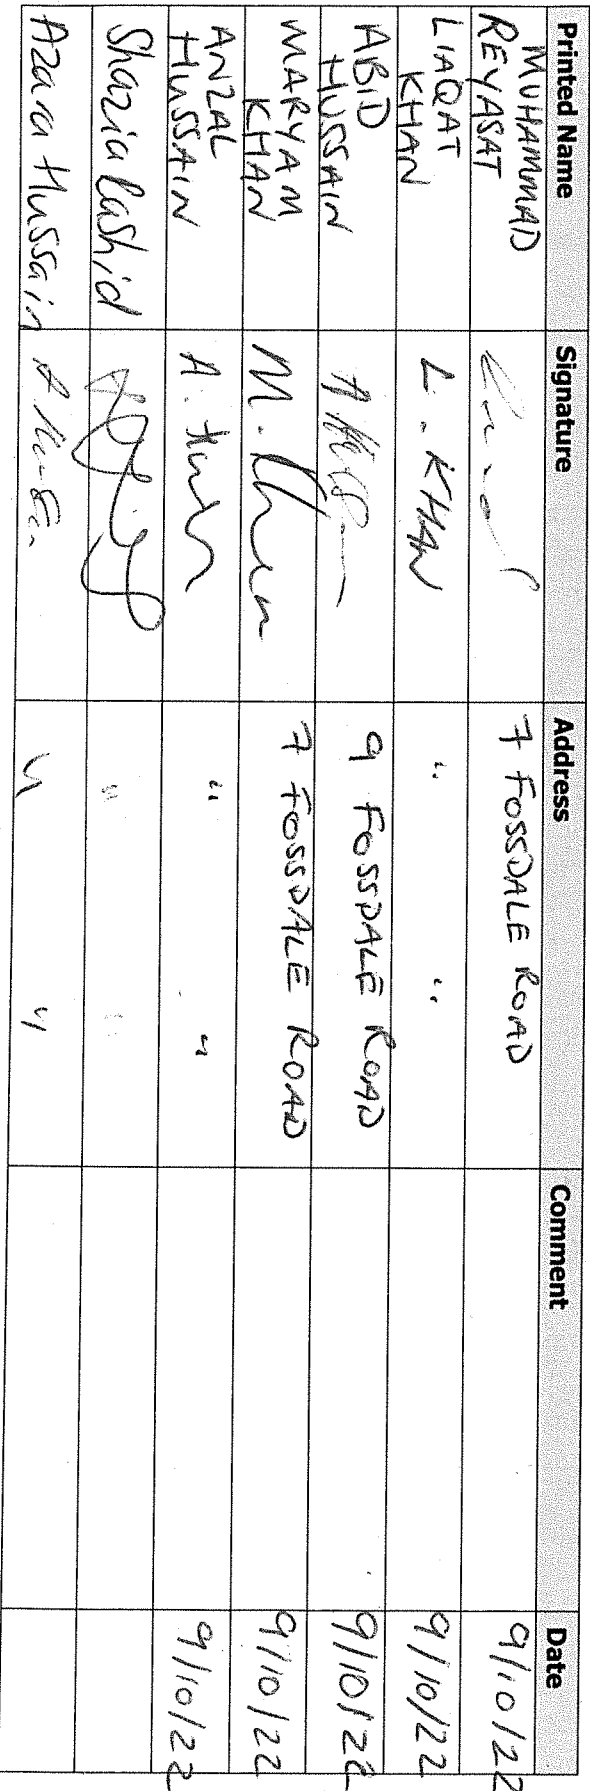 Printed Name Signature Address Comment Date
MUHAMMAD
REYASAT 7 FOSSDALE ROAD 9/10/22
LIAQAT
KHAN L. KHAN " " 9/10/22
ABID
HUSSAIN 9 FOSSDALE ROAD 9/10/22
MARYAM
KHAN M. Khan 7 FOSSDALE ROAD 9/10/22
ANZAL
HUSSAIN A. " " 9/10/22
Shazia Rashid " "
Azara Hussain " "